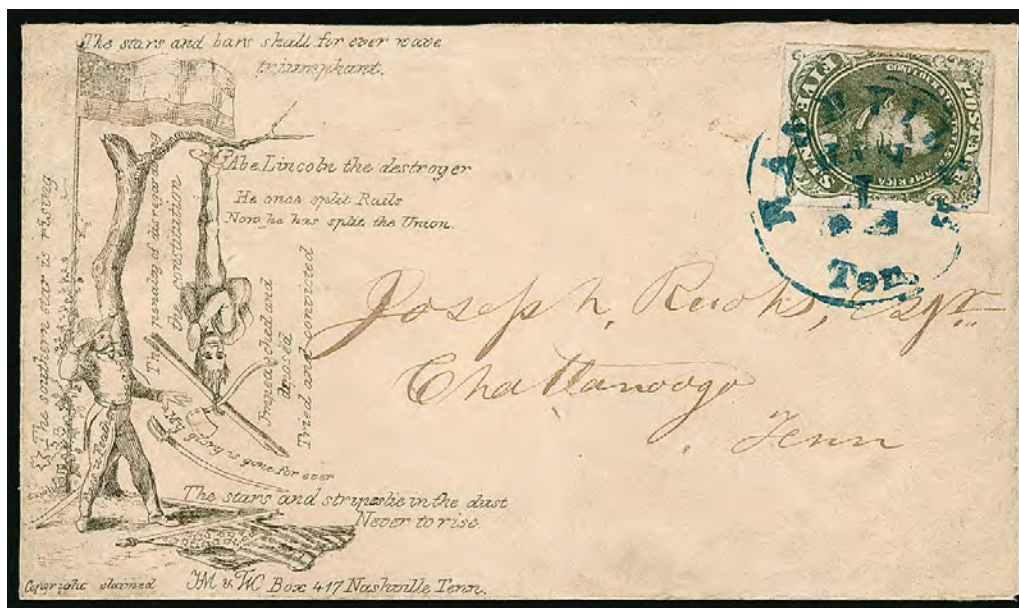 The stars and bars shall for ever wave
triumphant.
Abe Lincoln the destroyer
He once split Rails
Now he has split the Union.
The southern star is rising
The penalty of disregarding
the constitution
Impeached and
Tried and convicted
My glory is gone for ever
The stars and stripes lie in the dust
Never to rise.
Copyright claimed
JM & HC Box 417 Nashville, Tenn.
FIVE CENTS
POSTAGE
CONFEDERATE STATES OF AMERICA
Ten.
Joseph, Esqr.
Chattanooga
Tenn